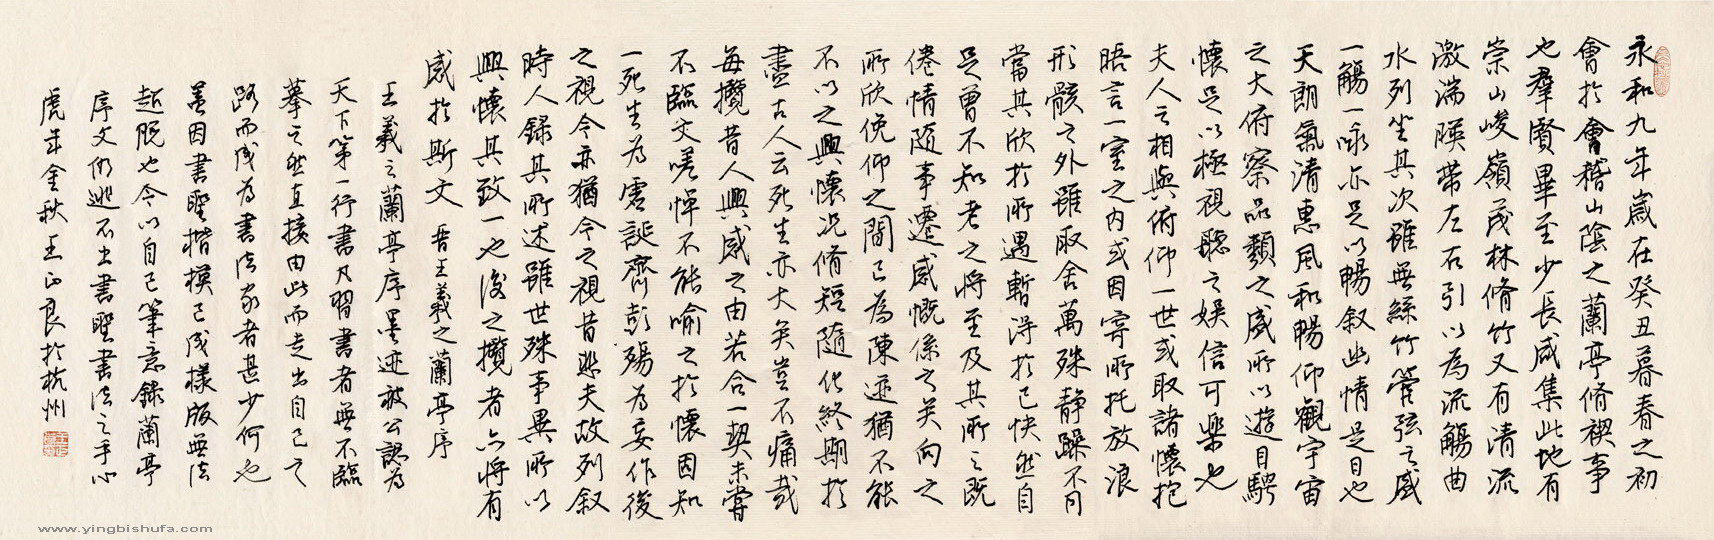 永和九年歲在癸丑暮春之初
會於會稽山陰之蘭亭脩禊事
也羣賢畢至少長咸集此地有
崇山峻嶺茂林脩竹又有清流
激湍暎帶左右引以為流觴曲
水列坐其次雖無絲竹管弦之盛
一觴一詠亦足以暢叙幽情是日也
天朗氣清惠風和暢仰觀宇宙
之大俯察品類之盛所以遊目騁
懷足以極視聽之娱信可樂也
夫人之相與俯仰一世或取諸懷抱
晤言一室之内或因寄所托放浪
形骸之外雖取舍萬殊静躁不同
當其欣於所遇暫得於己快然自
足曾不知老之將至及其所之既
倦情隨事遷感慨係之矣向之
所欣俛仰之間已為陳迹猶不能
不以之興懷况脩短隨化終期於
盡古人云死生亦大矣豈不痛哉
每攬昔人興感之由若合一契未嘗
不臨文嗟悼不能喻之於懷固知
一死生為虚誕齊彭殤為妄作後
之視今亦猶今之視昔悲夫故列叙
時人録其所述雖世殊事異所以
興懷其致一也後之攬者亦將有
感於斯文 晋王羲之蘭亭序
王羲之蘭亭序墨迹被公認為
天下第一行書凡習書者無不臨
摹之然直接由此而走出自己之
路而成為書法家者甚少何也
蓋因書聖楷模已成樣版無法
超脱也今以自己筆意録蘭亭
序文仍逃不出書聖書法之手心
虎年金秋王正良於杭州
www.yingbishufa.com